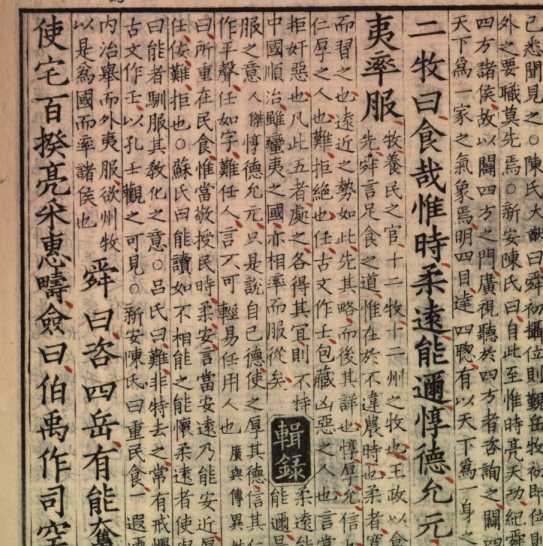 已悉聞見之○陳氏大猷曰舜初攝位則覲岳牧初即位則
外之要職莫先焉○新安陳氏曰自此至惟時亮天功紀舜
四方諸侯故以闢四方之門廣視聽於四方者咨詢之闢四
天下為一家之氣象焉明四目達四聰有以天下為一身之
二牧曰食哉惟時柔遠能邇惇德允元
夷率服
牧養民之官十二牧十二州之牧也王政以食
先舜言足食之道惟在於不違農時也柔者寬
而習之也遠近之勢如此先其略而後其詳也惇厚允信
仁厚之人也難拒絕也任古文作士包藏凶惡之人也言當
拒奸惡也凡此五者處之各得其宜則不特
中國順治雖蠻夷之國亦相率而服從矣
輯錄
柔遠能
能邇是
服之意人傑惇德允元只是說自己德使之厚其德信其仁
作平聲任如字難任人言不可輕易任用人也廣與傳異
曰所重在民食惟當敬授民時柔安言當安遠乃能安近厚
任佞難拒也○蘇氏曰能讀如不相能之能懷柔遠者使
曰能者馴服其教化之意○呂氏曰難非特去之常有戒懼
古文作壬以孔壬觀之可見○新安陳氏曰重民食一遐邇
內治舉而外夷服欲州牧
以是為國而率諸侯也
舜曰咨四岳有能奮
使宅百揆亮采惠疇僉曰伯禹作司空